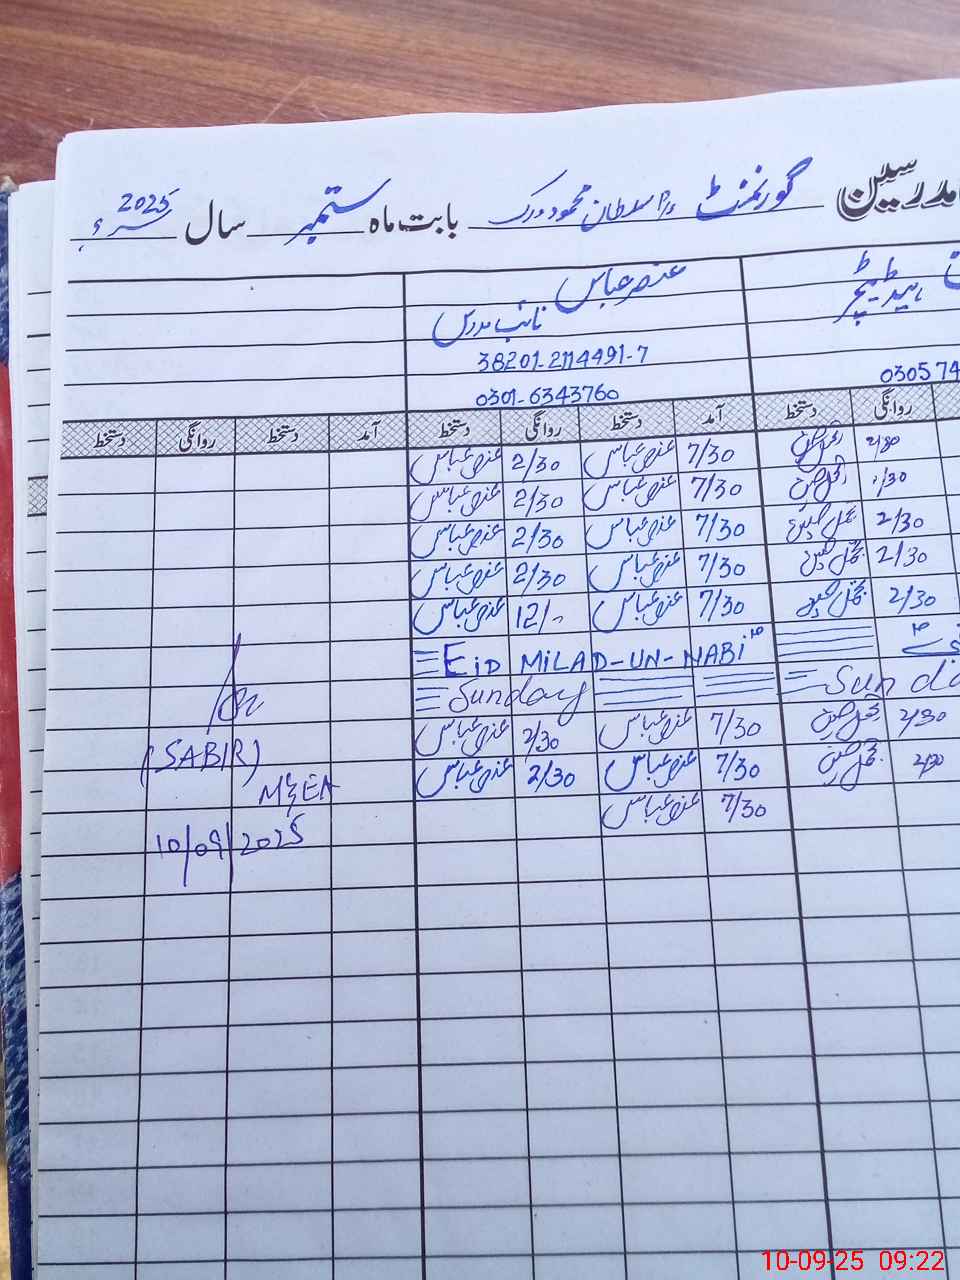 مدرسین گورنمنٹ پرا سلطان محمود ورک بابت ماہ ستمبر سال 2025ء
عنصر عباس
نائب مدرس
38201-2114491-7
0301-6343760
ہیڈ ٹیچر
030574
روانگی دستخط آمد دستخط روانگی دستخط آمد دستخط روانگی دستخط
2/30 7/30 عنصر عباس 2/30 عنصر عباس
7/30 عنصر عباس 2/30 عنصر عباس
2/30 7/30 عنصر عباس 2/30 عنصر عباس
2/30 7/30 عنصر عباس 2/30 عنصر عباس
2/30 7/30 عنصر عباس 12/- عنصر عباس
EID MILAD-UN-NABI
Sunday Sund
2/30 7/30 عنصر عباس 2/30 عنصر عباس
2/30 7/30 عنصر عباس 2/30 عنصر عباس
7/30 عنصر عباس
(SABIR)
M&EA
10/09/2025
10-09-25 09:22